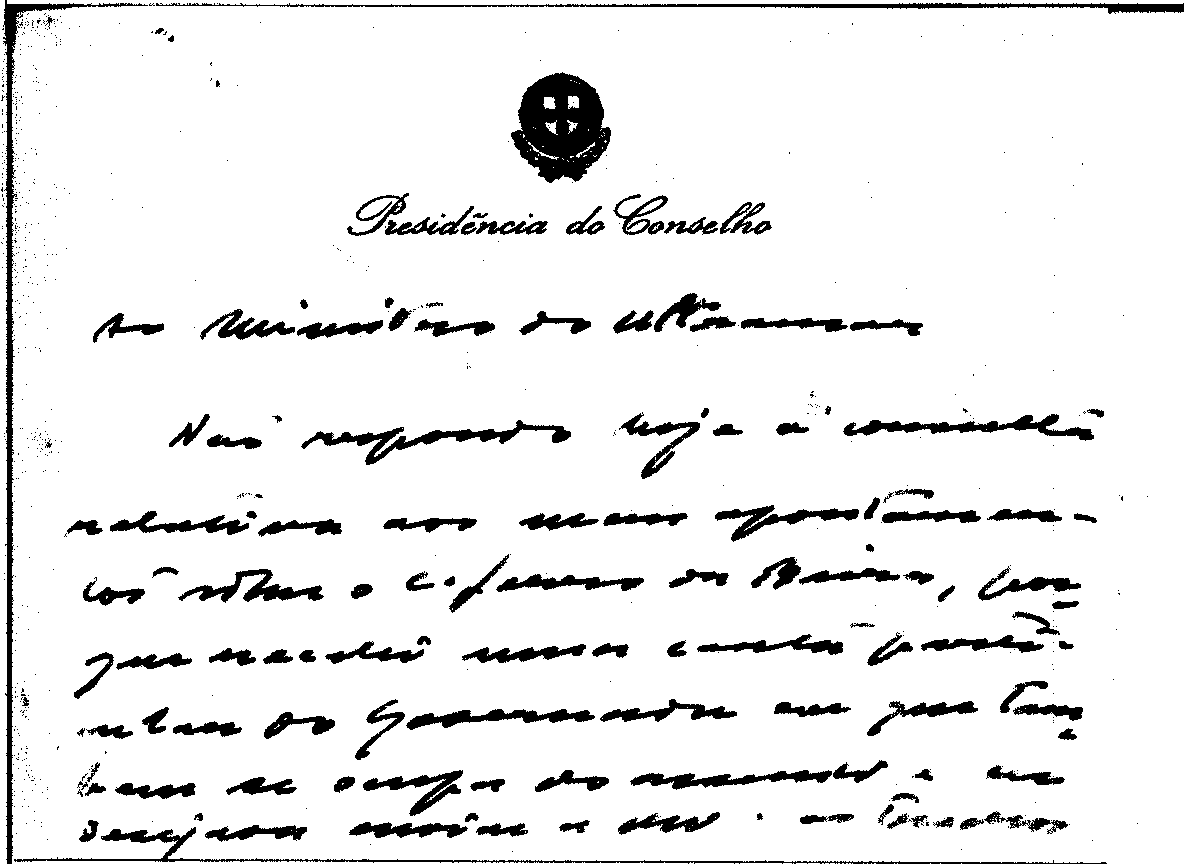 Presidência do Conselho
Ao Ministro do Ultramar
Não respondo hoje à consulta
relativa aos meus apontamen-
tos sobre o c. ferro da Beira, por-
que recebi uma carta parti-
cular do Governador em que tam-
bem se ocupa do assunto e eu
desejava